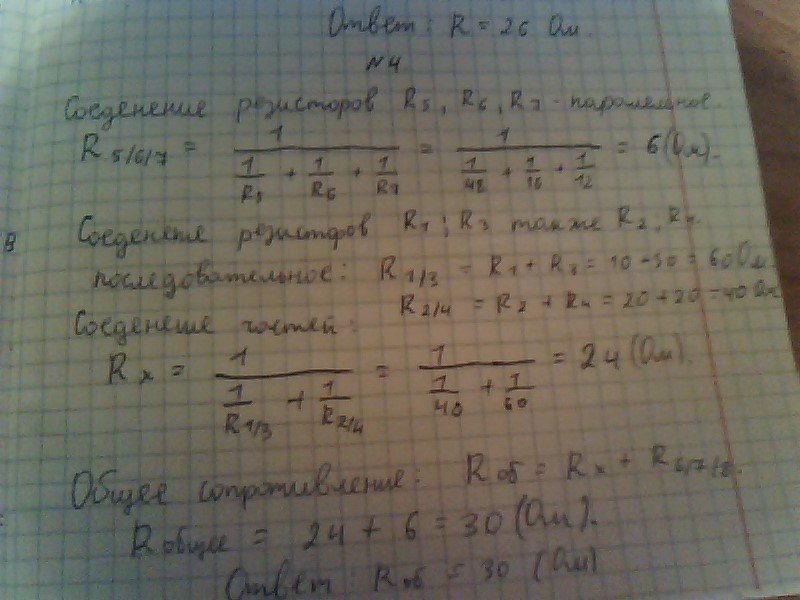 Ответ: R = 26 Ом.
№4
Соеденение резисторов R5, R6, R7 - паралельное.
R 5/6/7 = 1 / (1/R5 + 1/R6 + 1/R7) = 1 / (1/48 + 1/16 + 1/12) = 6 (Ом).
Соеденение резисторов R1; R3 также R2, R4.
последовательное: R 1/3 = R1 + R3 = 10 + 50 = 60 Ом
R 2/4 = R2 + R4 = 20 + 20 = 40 Ом
Соеденение частей:
R x = 1 / (1/R1/3 + 1/R2/4) = 1 / (1/40 + 1/60) = 24 (Ом).
Общее сопротивление: R об = R x + R 6/7/8.
R общее = 24 + 6 = 30 (Ом).
Ответ: R об = 30 (Ом)